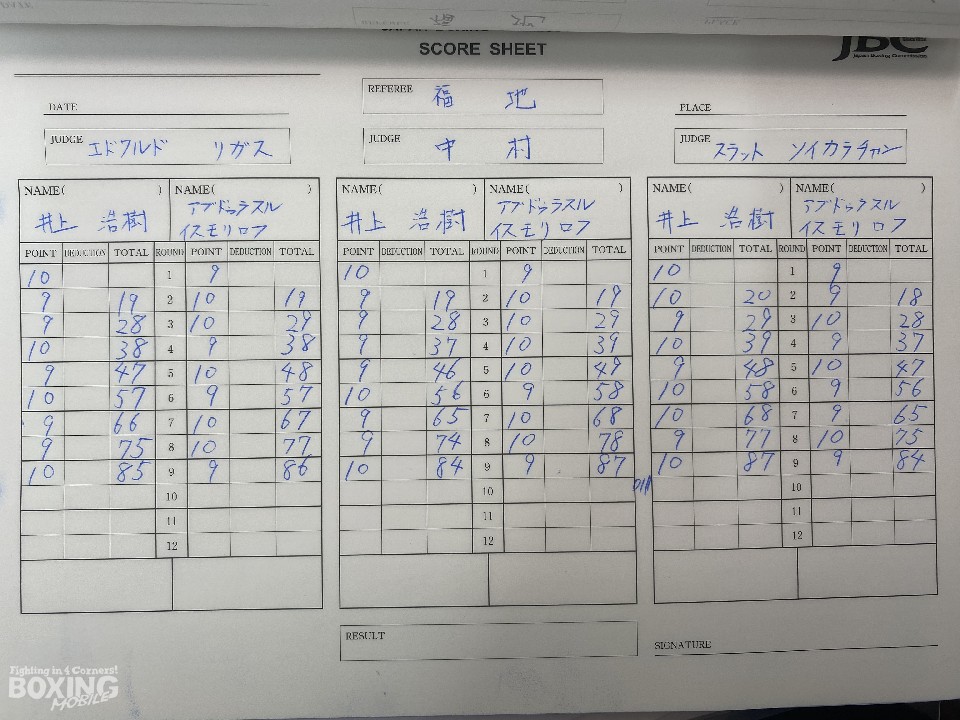 SCORE SHEET
JBC
REFEREE 福 地
DATE
PLACE
JUDGE エドワルド リガス
JUDGE 中 村
JUDGE スラット ソイカラチャン
NAME( ) NAME( ) NAME( ) NAME( ) NAME( ) NAME( )
井上 浩樹 アブドゥラスル イスモリロフ 井上 浩樹 アブドゥラスル イスモリロフ 井上 浩樹 アブドゥラスル イスモリロフ
POINT DEDUCTION TOTAL ROUND POINT DEDUCTION TOTAL POINT DEDUCTION TOTAL ROUND POINT DEDUCTION TOTAL POINT DEDUCTION TOTAL ROUND POINT DEDUCTION TOTAL
10 1 9 10 1 9 10 1 9
9 19 2 10 19 9 19 2 10 19 10 20 2 9 18
9 28 3 10 29 9 28 3 10 29 9 29 3 10 28
10 38 4 9 38 9 37 4 10 39 10 39 4 9 37
9 47 5 10 48 9 46 5 10 49 9 48 5 10 47
10 57 6 9 57 10 56 6 9 58 10 58 6 9 56
9 66 7 10 67 9 65 7 10 68 10 68 7 9 65
9 75 8 10 77 9 74 8 10 78 9 77 8 10 75
10 85 9 9 86 10 84 9 9 87 10 87 9 9 84
10 10 10
11 11 11
12 12 12
RESULT
SIGNATURE
Fighting in 4 Corners!
BOXING
MOBILE